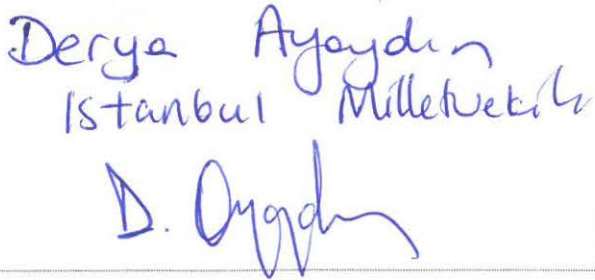 Derya Ayaydın
İstanbul Milletvekili
D. Ayaydın